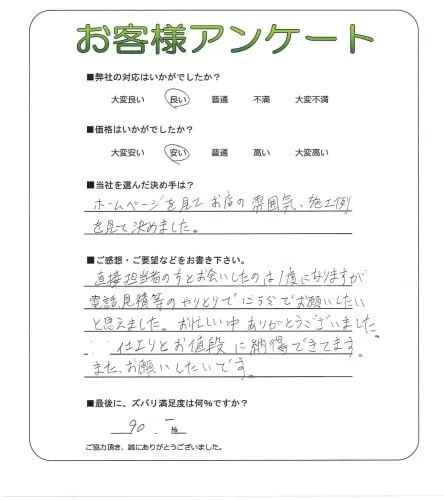 お客様アンケート
■弊社の対応はいかがでしたか？
大変良い 良い 普通 不満 大変不満
■価格はいかがでしたか？
大変安い 安い 普通 高い 大変高い
■当社を選んだ決め手は？
ホームページを見て お店の雰囲気、施工例
を見て決めました。
■ご感想・ご要望などをお書き下さい。
直接担当者の方とお会いしたのは1度になりますが
電話、見積等のやりとりで 分でお願いしたい
と思えました。お忙しい中ありがとうございました。
仕上りとお値段に納得できてます。
また、お願いしたいです。
■最後に、ズバリ満足度は何%ですか？
90 %
ご協力頂き、誠にありがとうございました。